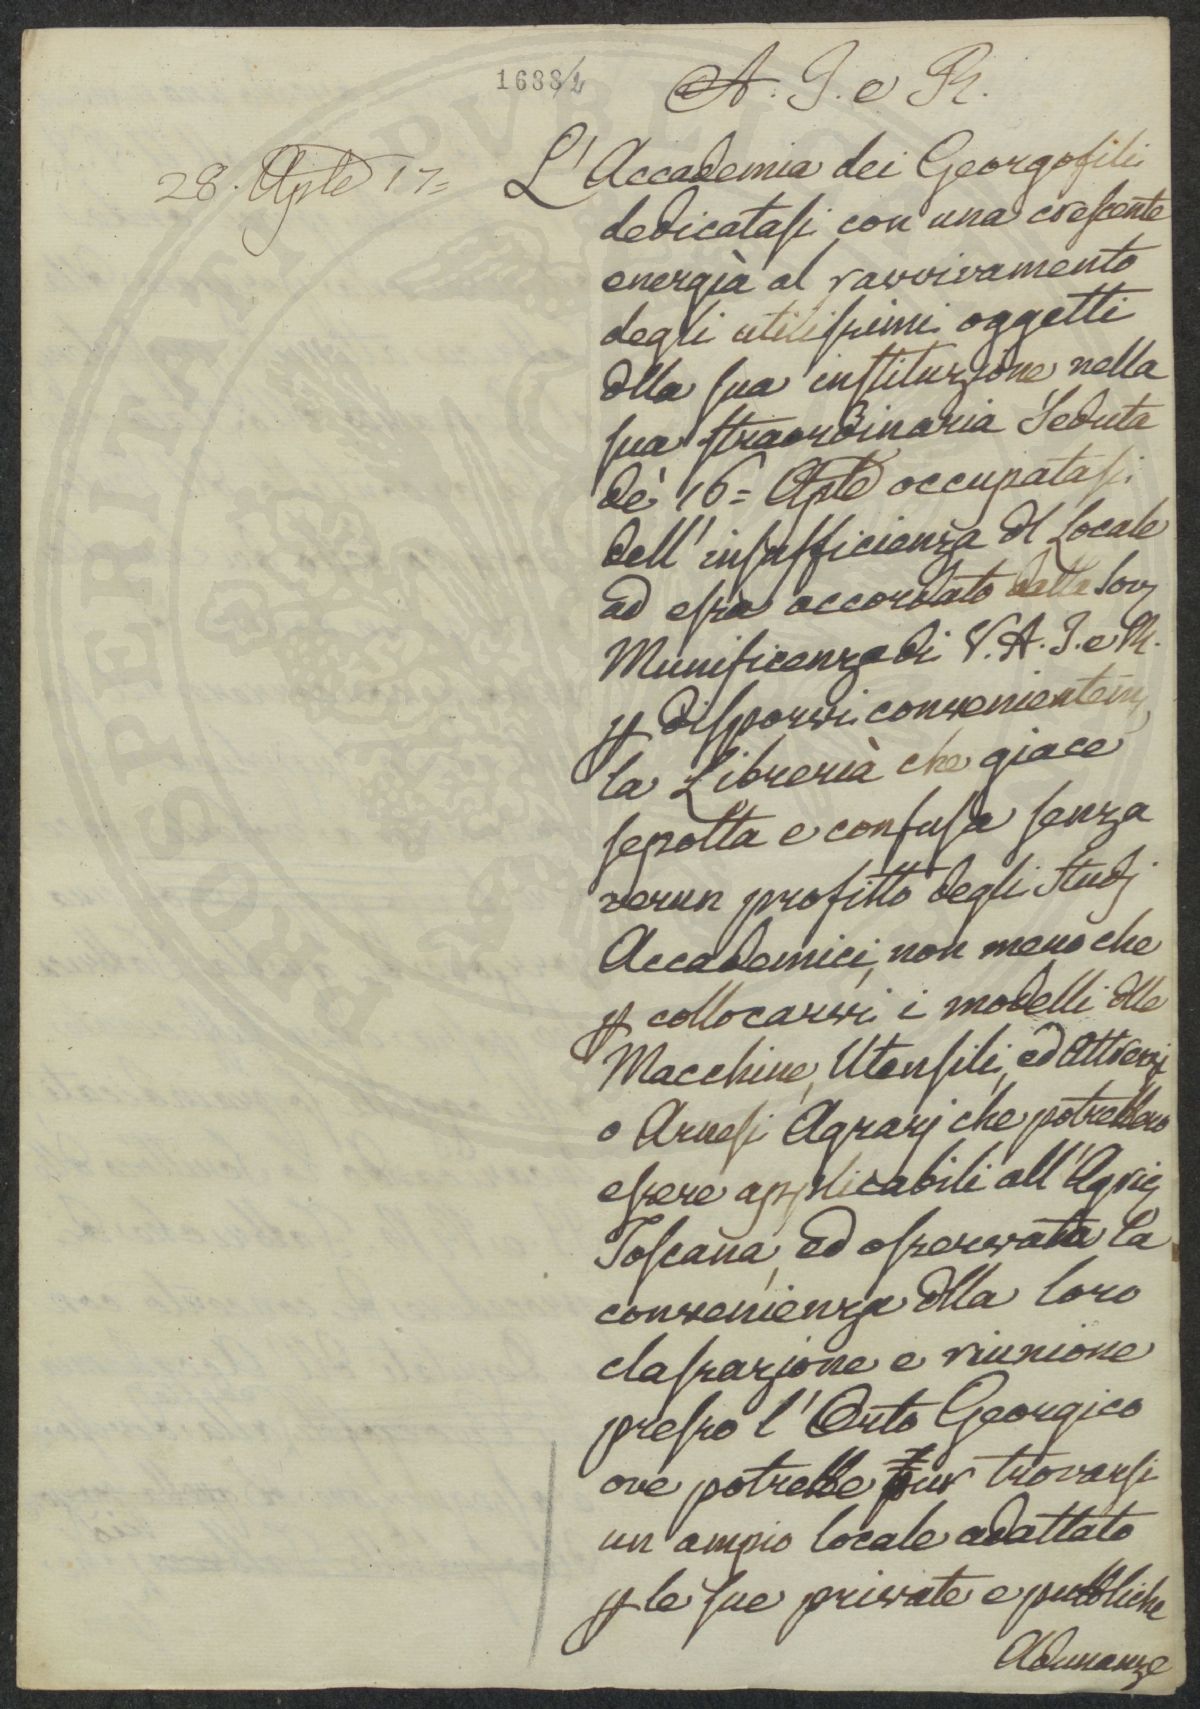 1688/2
A. I. e R.
28. Aple 17=
L'Accademia dei Georgofili
dedicatasi con una crescente
energia al ravvivamento
degli utilissimi oggetti
dlla sua instituzione nella
sua straordinaria Seduta
de' 16= Aple occupatasi
dell'insufficienza dl Locale
ad essa accordato dalla Sov.
Munificenza di V. A. I. e R.
p disporvi convenientem.
la Libreria che giace
sepolta e confusa senza
verun profitto degli Studj
Accademici, non meno che
p collocarvi i modelli dlle
Macchine, Utensili, ed Attrezzi
o Arnesi Agrarj che potrebbero
essere applicabili all'Agric.
Toscana, ed osservata la
convenienza dlla loro
classazione e riunione
presso l'Orto Georgico
ove potrebbe pur trovarsi
un ampio locale adattato
p le sue private e pubbliche
Adunanze
PROSPERITATI PUBLICAE